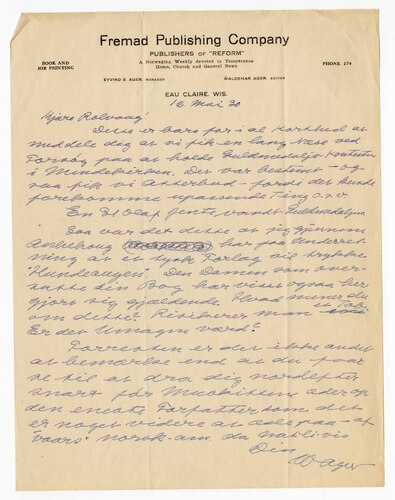 Fremad Publishing Company
PUBLISHERS OF "REFORM"
A Norwegian Weekly devoted to Temperance
Home, Church and General News
BOOK AND
JOB PRINTING
PHONE 279
EYVIND B. AGER, MANAGER
WALDEMAR AGER, EDITOR
EAU CLAIRE, WIS.
18 Mai 30
Kjære Rolvaag!
Dette er bare for i al korthed at
meddele dig at vi fik en lang næse ved
Forsøg paa at holde Guldmedalje
i Mindekirken. Det var bestemt - og
saa fik vi Afterbud - fordi der kunde
forekomme upassende Ting o.s.v.
En St Olaf Jente vandt Guldmedaljen
Saa var det dette at jeg gjennem
har faa Underret
ning at et tysk Forlag vil trykke
"Hundeøine". Den Damen som over-
satte din Bog har visst ogsaa her
gjort sig gjældende. Hvad mener du
om dette? Risikerer man et Tab
Er det Umagen værd?
Forresten er der ikke andet
at bemærke end at du faar
se til at dra dig nordefter
snart før er op
den eneste Forfatter som det
er noget videre at paa - af
"vaars" norsk-am. da
Din
W Ager